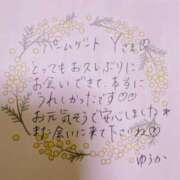 ムゲート Yさま♡
とってもお久しぶりに
お会いできて、本当に
うれしかったです♡♡
お元気そうで安心しました★
また会いに来て下さいね♡
ゆうか